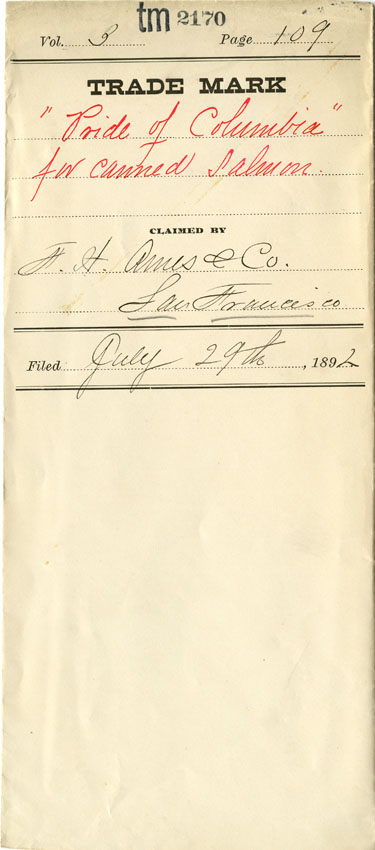 tm 2170
Vol. 3 Page 109
TRADE MARK
"Pride of Columbia"
for canned Salmon.
CLAIMED BY
F. H. Ames & Co.
San Francisco
Filed July 29th, 1892